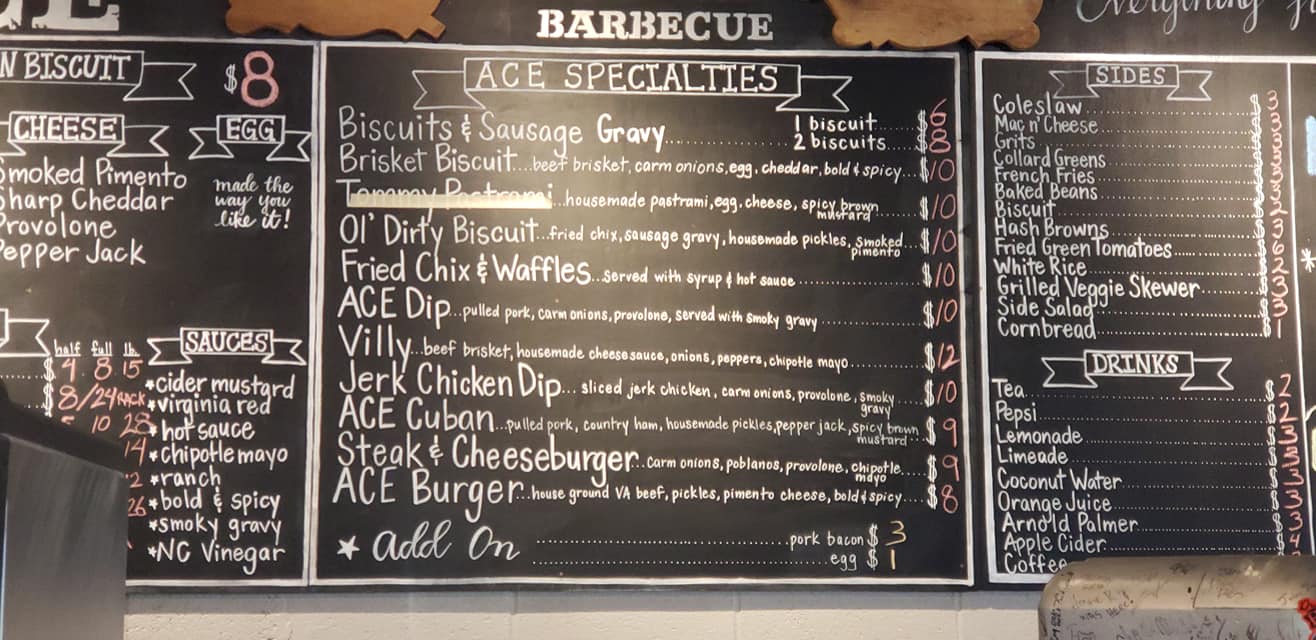 BARBECUE
N BISCUIT $8
CHEESE
Smoked Pimento
Sharp Cheddar
Provolone
Pepper Jack
EGG
made the
way you
like it!
half full lb.
$4 8 15
$8/24 RACK
10 28
14
SAUCES
*cider mustard
*virginia red
*hot sauce
*chipotle mayo
*ranch
*bold & spicy
*smoky gravy
*NC Vinegar
ACE SPECIALTIES
Biscuits & Sausage Gravy 1 biscuit $6
2 biscuits $8
Brisket Biscuit...beef brisket, carm onions, egg, cheddar, bold & spicy...$10
Tommy Pastrami...housemade pastrami, egg, cheese, spicy brown mustard $10
Ol' Dirty Biscuit...fried chix, sausage gravy, housemade pickles, smoked pimento $10
Fried Chix & Waffles...served with syrup & hot sauce $10
ACE Dip...pulled pork, carm onions, provolone, served with smoky gravy $10
Villy...beef brisket, housemade cheese sauce, onions, peppers, chipotle mayo $12
Jerk Chicken Dip... sliced jerk chicken, carm onions, provolone, smoky gravy $10
ACE Cuban...pulled pork, country ham, housemade pickles, pepper jack, spicy brown mustard $9
Steak & Cheeseburger...carm onions, poblanos, provolone, chipotle mayo $9
ACE Burger...house ground VA beef, pickles, pimento cheese, bold & spicy $8
Add On pork bacon $3
egg $1
Everything
SIDES
Coleslaw 3
Mac n' Cheese 3
Grits
Collard Greens
French Fries
Baked Beans
Biscuit
Hash Browns
Fried Green Tomatoes 6
White Rice 2
Grilled Veggie Skewer 3
Side Salad 3
Cornbread 1
DRINKS
Tea $2
Pepsi $2
Lemonade 3
Limeade 3
Coconut Water 3
Orange Juice 3
Arnold Palmer 3
Apple Cider 4
Coffee